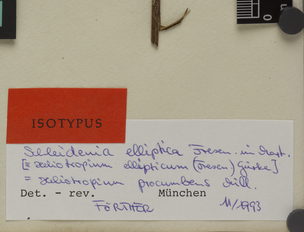 ISOTYPUS
Schleidenia elliptica Fresen. in Mart.
[≡ Heliotropium ellipticum (Fresen.) Gürke]
= Heliotropium procumbens Mill.
Det. - rev. München
FÖRTHER 11/1993
0